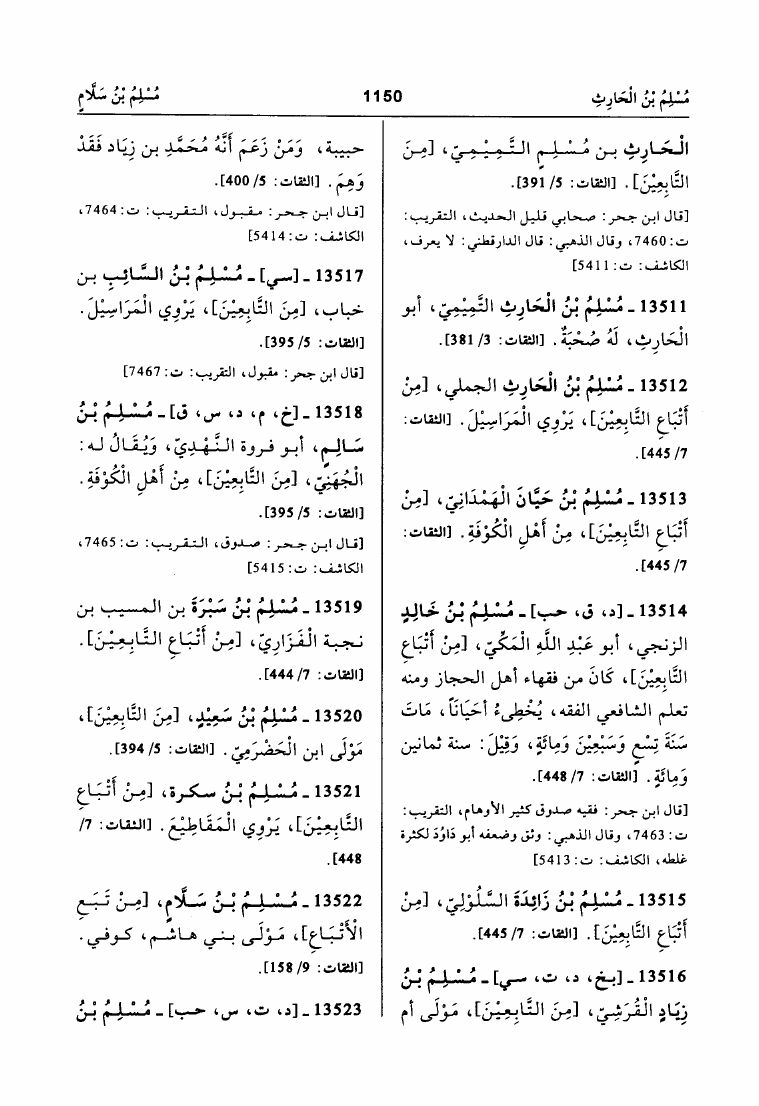 مُسْلِمُ بْنُ الْحَارِثِ
1150
مُسْلِمُ بْنُ سَلَّامٍ
الْحَارِثِ بن مُسْلِمٍ التَّمِيْمِيّ، [مِنَ
التَّابِعِيْنَ]. [الثقات: 5/ 391].
[قال ابن حجر: صحابي قليل الحديث، التقريب:
ت:7460، وقال الذهبي: قال الدارقطني: لا يعرف،
الكاشف: ت:5411]
13511 ـ مُسْلِمُ بْنُ الْحَارِثِ التَّمِيْمِيّ، أبو
الْحَارِث، لَهُ صُحْبَةٌ. [الثقات: 3/ 381].
13512 ـ مُسْلِمُ بْنُ الْحَارِثِ الجملي، [مِنْ
أَتْبَاعِ التَّابِعِيْنَ]، يَرْوِي الْمَرَاسِيْلَ. [الثقات:
7/ 445].
13513 ـ مُسْلِمُ بْنُ حَيَّانَ الْهَمْدَانِيّ، [مِنْ
أَتْبَاعِ التَّابِعِيْنَ]، مِنْ أَهْلِ الْكُوْفَةِ. [الثقات:
7/ 445].
13514 ـ [د، ق، حب] ـ مُسْلِمُ بْنُ خَالِدٍ
الزنجي، أبو عَبْدِ اللَّهِ الْمَكِّيّ، [مِنْ أَتْبَاعِ
التَّابِعِيْنَ]، كَانَ من فقهاء أهل الحجاز ومنه
تعلم الشافعي الفقه، يُخْطِىءُ أَحْيَانَاً، مَاتَ
سَنَةَ تِسْعٍ وَسَبْعِيْنَ وَمِائَةٍ، وَقِيْلَ: سنة ثمانين
وَمِائَةٍ. [الثقات: 7/ 448].
[قال ابن حجر: فقيه صدوق كثير الأوهام، التقريب:
ت:7463، وقال الذهبي: وثق وضعفه أبو دَاوُدَ لكثرة
غلطه، الكاشف: ت:5413]
13515 ـ مُسْلِمُ بْنُ زَائِدَةَ السَّلُوْلِيّ، [مِنْ
أَتْبَاعِ التَّابِعِيْنَ]. [الثقات: 7/ 445].
13516 ـ [بخ، د، ت، سي] ـ مُسْلِمُ بْنُ
زِيَادٍ الْقُرَشِيّ، [مِنَ التَّابِعِيْنَ]، مَوْلَى أم
حبيبة، وَمَنْ زَعَمَ أَنَّهُ مُحَمَّد بن زِيَاد فَقَدْ
وَهِمَ. [الثقات: 5/ 400].
[قال ابن حجر: مقبول، التقريب: ت:7464،
الكاشف: ت:5414]
13517 ـ [سي] ـ مُسْلِمُ بْنُ السَّائِبِ بن
خباب، [مِنَ التَّابِعِيْنَ]، يَرْوِي الْمَرَاسِيْلَ.
[الثقات: 5/ 395].
[قال ابن حجر: مقبول، التقريب: ت:7467]
13518 ـ [خ، م، د، س، ق] ـ مُسْلِمُ بْنُ
سَالِمٍ، أبو فروة النَّهْدِيّ، وَيُقَالُ له:
الْجُهَنِيّ، [مِنَ التَّابِعِيْنَ]، مِنْ أَهْلِ الْكُوْفَةِ.
[الثقات: 5/ 395].
[قال ابن حجر: صدوق، التقريب: ت:7465،
الكاشف: ت:5415]
13519 ـ مُسْلِمُ بْنُ سَبْرَةَ بن المسيب بن
نجبة الْفَزَارِيّ، [مِنْ أَتْبَاعِ التَّابِعِيْنَ].
[الثقات: 7/ 444].
13520 ـ مُسْلِمُ بْنُ سَعِيْدٍ، [مِنَ التَّابِعِيْنَ]،
مَوْلَى ابن الْحَضْرَمِيّ. [الثقات: 5/ 394].
13521 ـ مُسْلِمُ بْنُ سكرة، [مِنْ أَتْبَاعِ
التَّابِعِيْنَ]، يَرْوِي الْمَقَاطِيْعَ. [الثقات: 7/
448].
13522 ـ مُسْلِمُ بْنُ سَلَّامٍ، [مِنْ تَبَعِ
الْأَتْبَاعِ]، مَوْلَى بني هاشم، كوفي.
[الثقات: 9/ 158].
13523 ـ [د، ت، س، حب] ـ مُسْلِمُ بْنُ